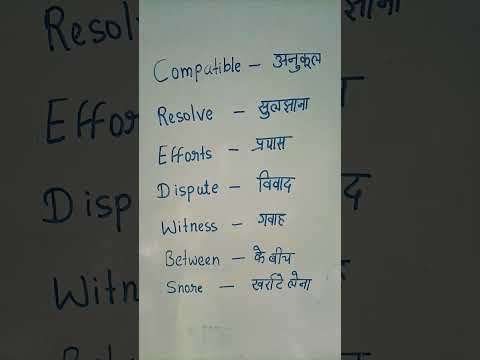 Compatible – अनुकूल
Resolve – सुलझाना
Efforts – प्रयास
Dispute – विवाद
Witness – गवाह
Between – के बीच
Snore – खर्राटे लेना